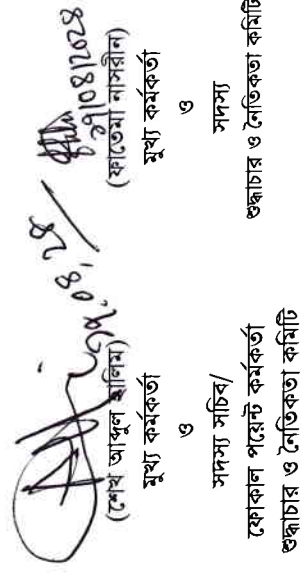 (শেখ আব্দুল হালিম)
মুখ্য কর্মকর্তা
ও
সদস্য সচিব/
ফোকাল পয়েন্ট কর্মকর্তা
শুদ্ধাচার ও নৈতিকতা কমিটি
(ফাতেমা নাসরীন)
মুখ্য কর্মকর্তা
ও
সদস্য
শুদ্ধাচার ও নৈতিকতা কমিটি